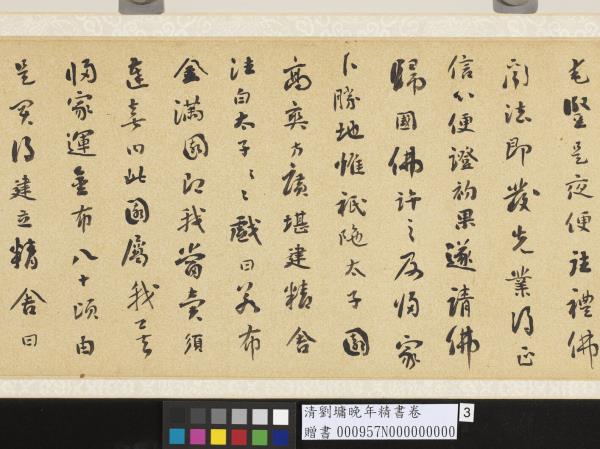 毛竪是夜便往禮佛
聞法即發先業得正
信心便證初果遂請佛
歸國佛許之及歸家
卜勝地惟祇陁太子園
高爽方廣堪建精舍
往白太子〻〻戲曰若布
金滿園即我當賣須
達喜曰此園屬我了矣
歸家運金布八十頃由
是買得建立精舍曰
清劉墉晚年精書卷
贈書 000957N000000000
3